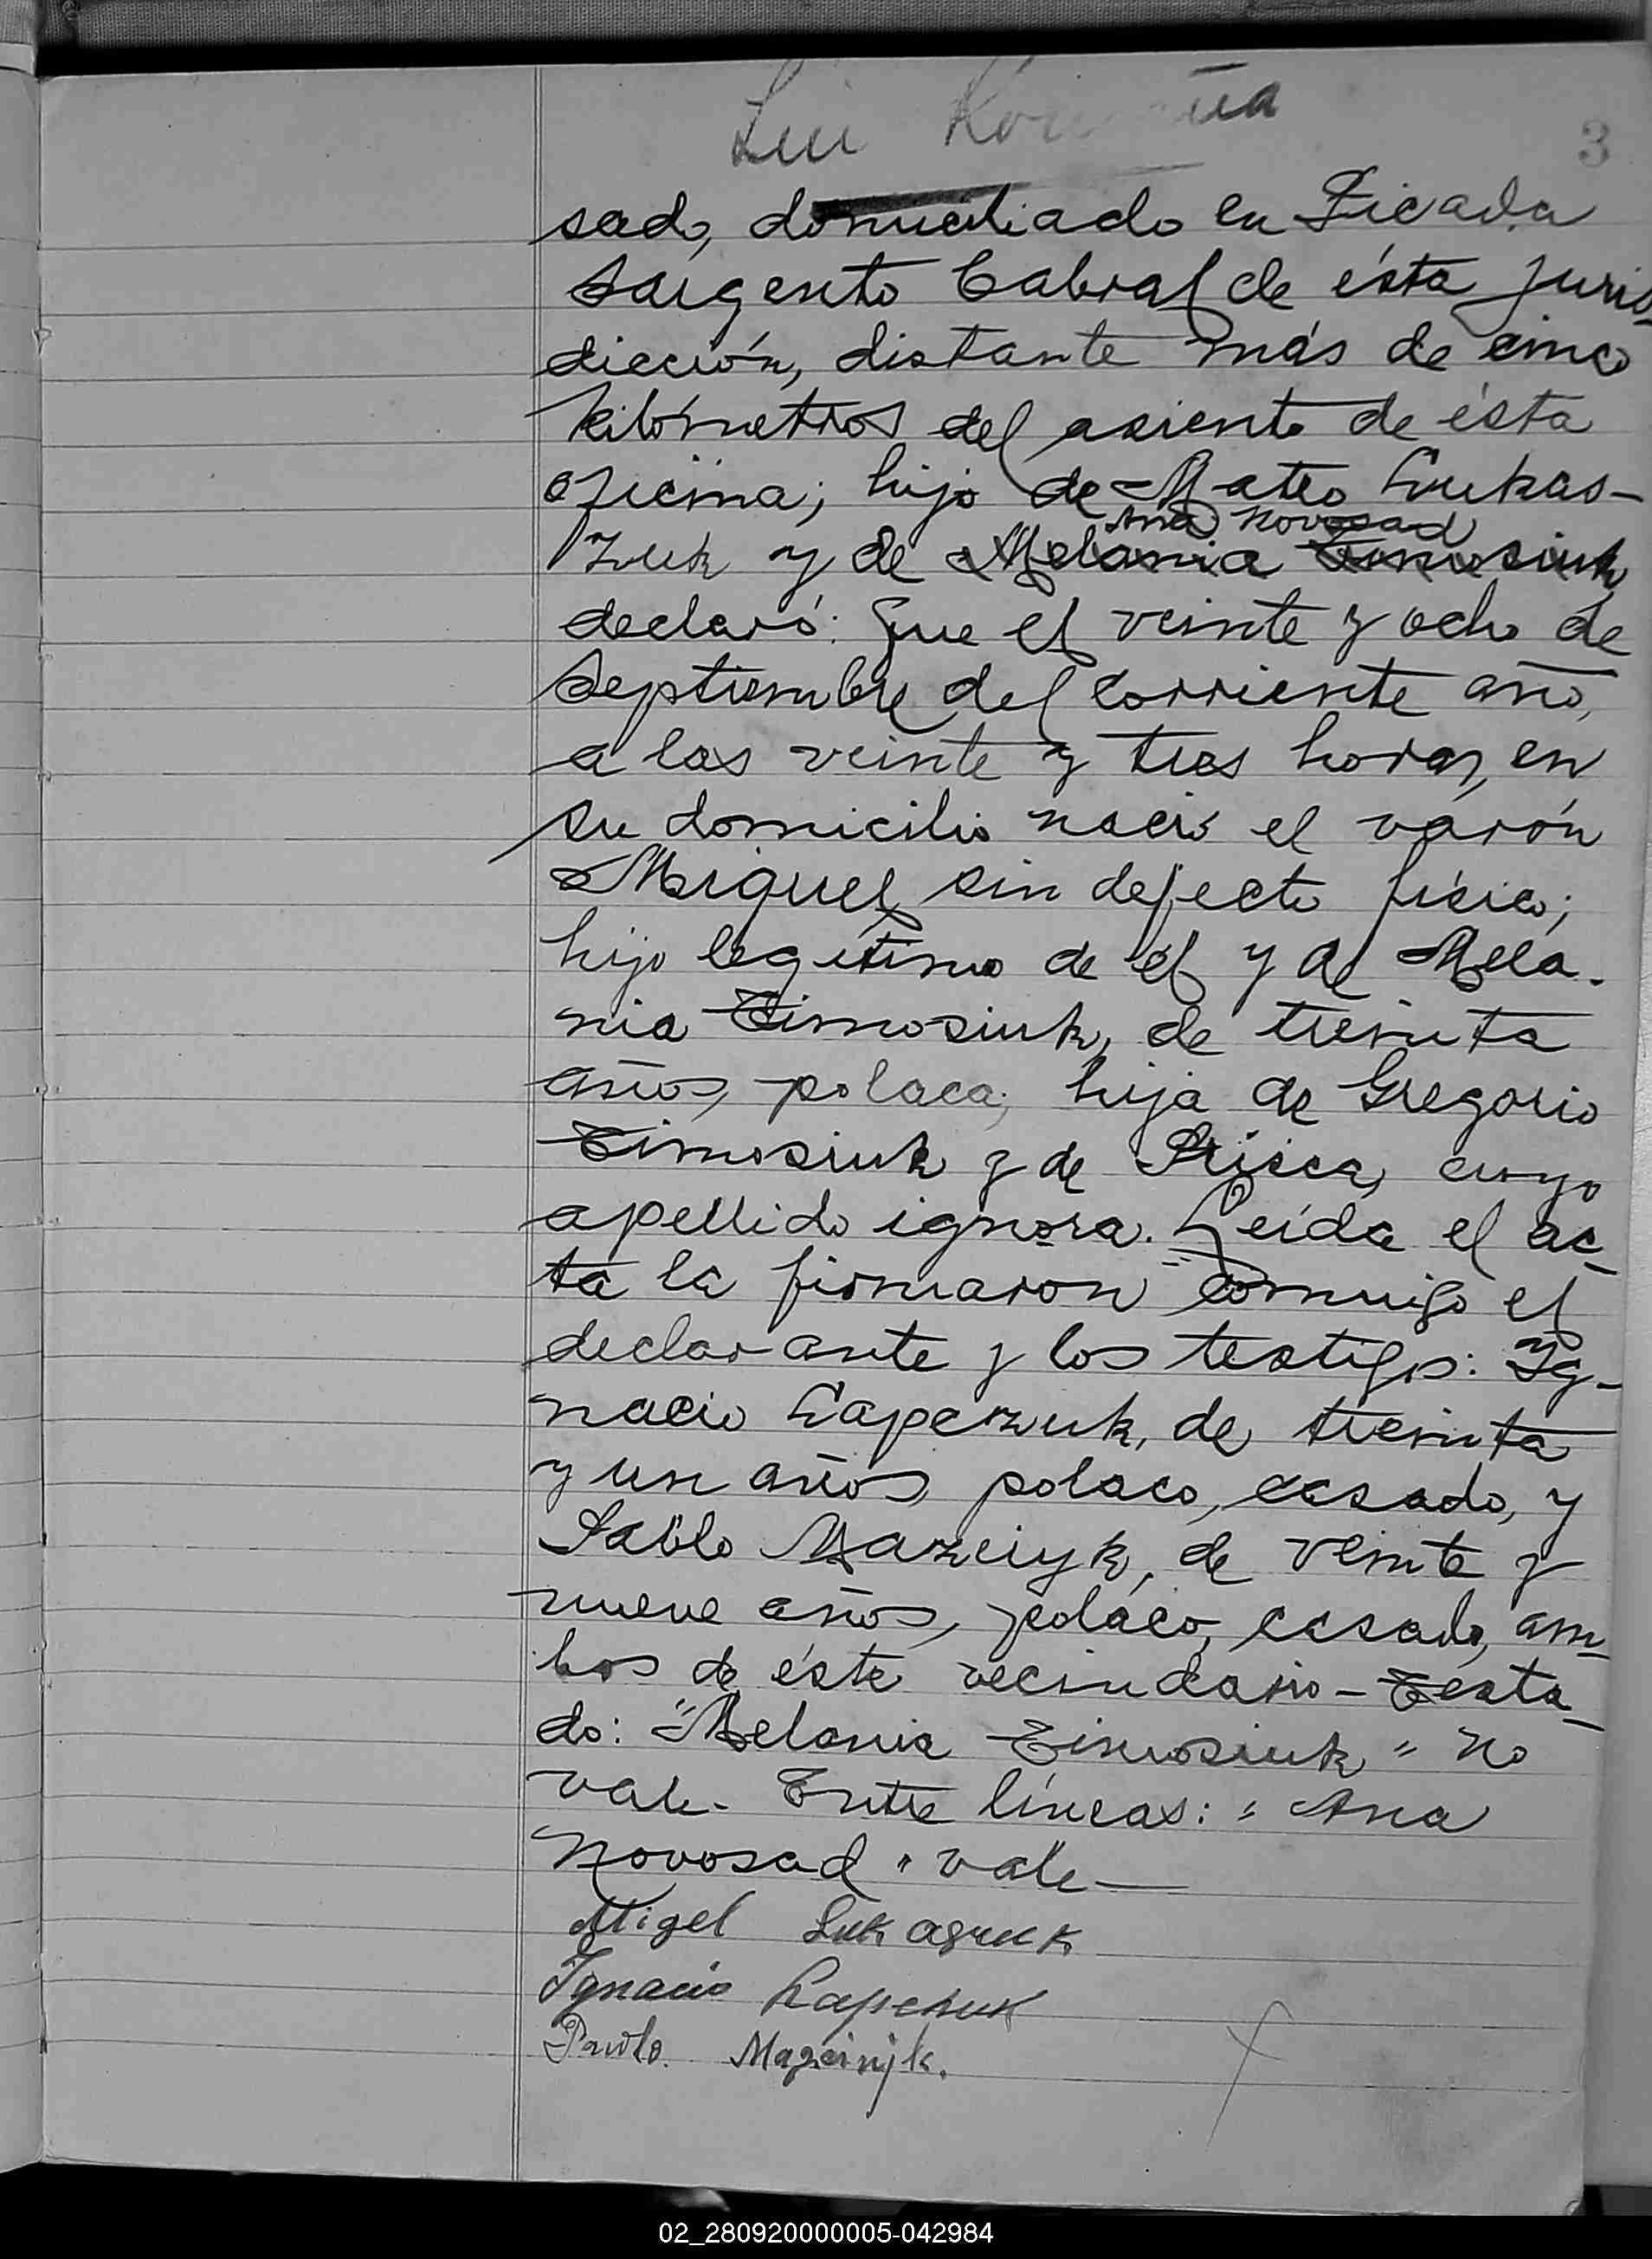 3
sado, domiciliado en Picada
Sargento Cabral de ésta juris-
dicción, distante más de cinco
kilómetros del asiento de ésta
oficina; hijo de Mateo Lukas-
Ana Novosad
zuk y de Melania Timosiuk
declaró: Que el veinte y ocho de
Septiembre del corriente año,
a las veinte y tres horas, en
su domicilio nació el varón
Miguel, sin defecto físico;
hijo legítimo de él y de Mela-
nia Timosiuk, de treinta
años, polaca; hija de Gregorio
Timosiuk y de cuyo
apellido ignora. Leída el ac-
ta la firmaron conmigo el
declarante y los testigos: Ig-
nacio Lapczuk, de treinta
y un años, polaco, casado, y
Pablo Mazciyk, de veinte y
nueve años, polaco, casado, am-
bos de éste vecindario - Testa-
do: "Melania Timosiuk" no
vale. Entre líneas: "Ana
Novosad" vale
Migel Lukaszuk
Ignacio Lapchuk
Pawlo.
02_280920000005-042984